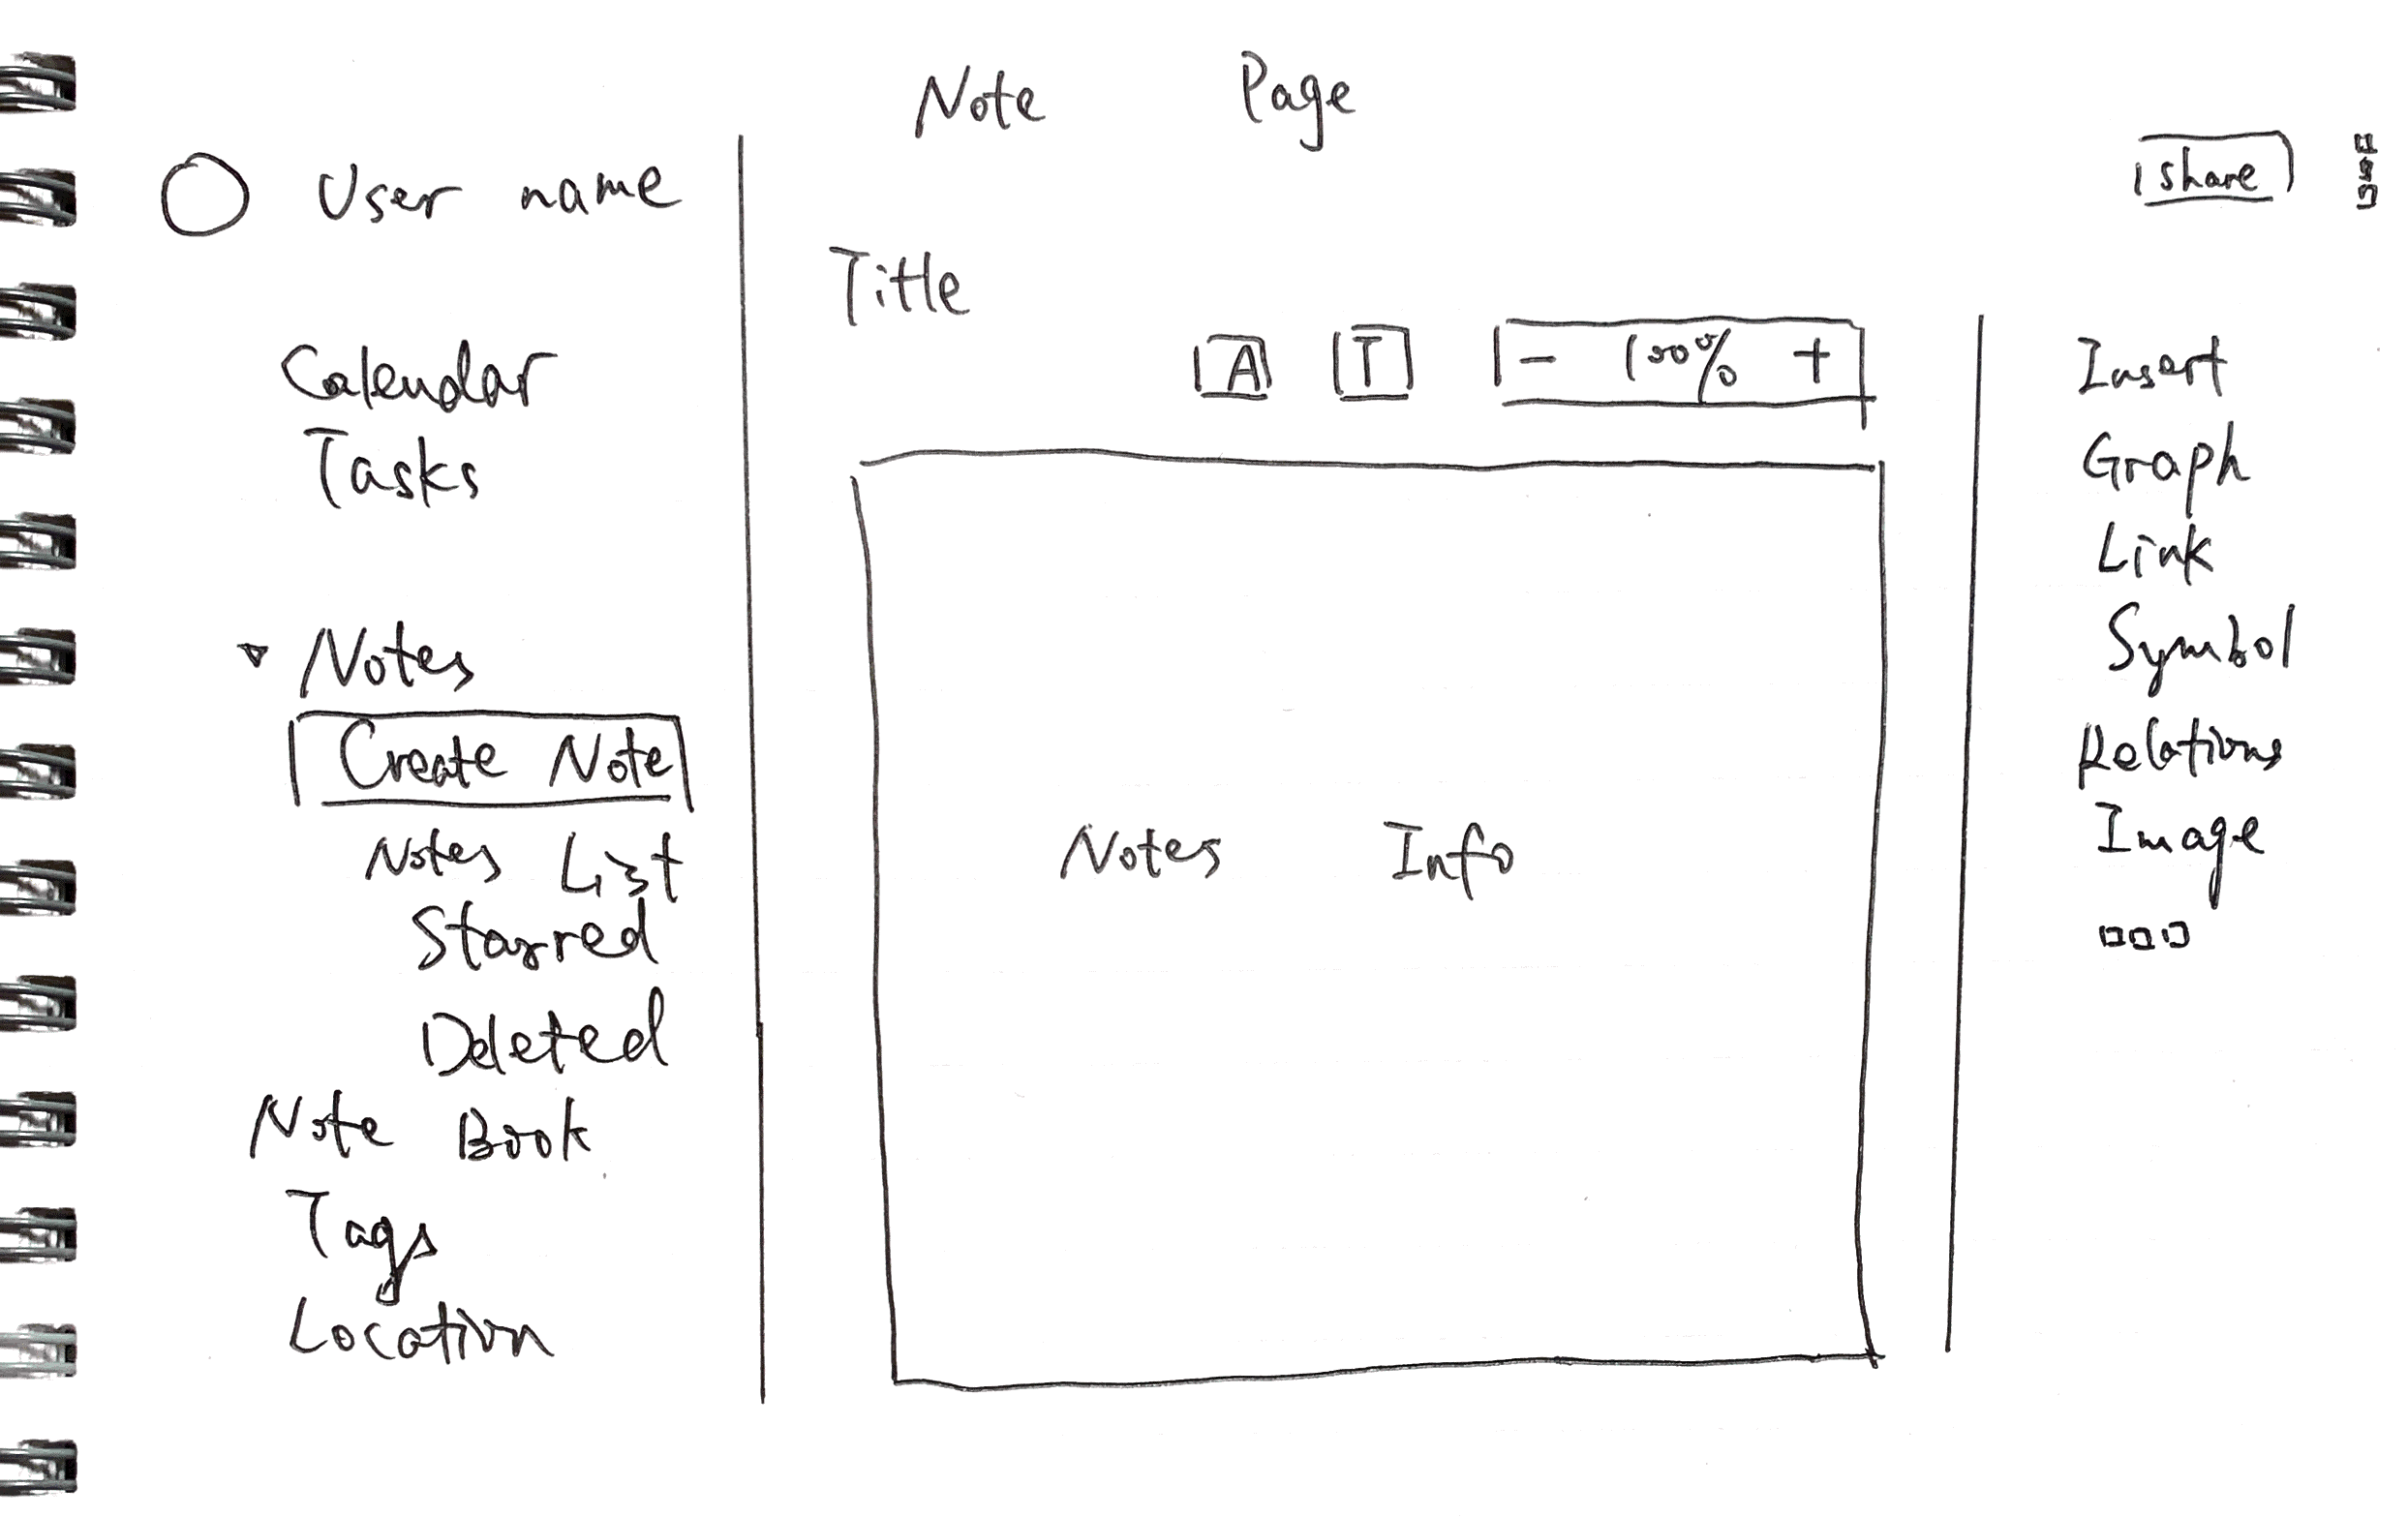 Note Page
User name
share
Title
Calendar
Tasks
Notes
Create Note
Notes List
Starred
Deleted
Note Book
Tags
Location
A T - 100% +
Notes Info
Insert
Graph
Link
Symbol
Relations
Image